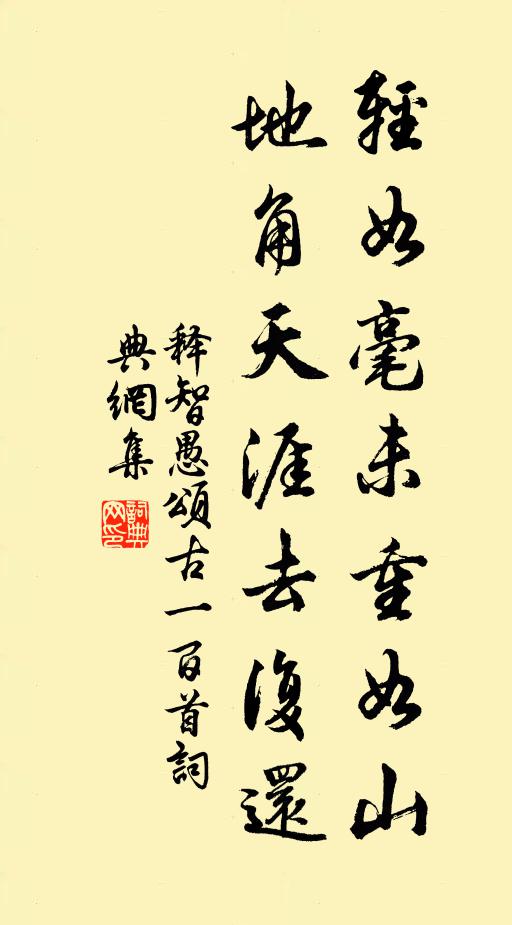 輕如毫末重如山
地角天涯去復還
释智愚頌古一百首詞
典網集
詞典
网印